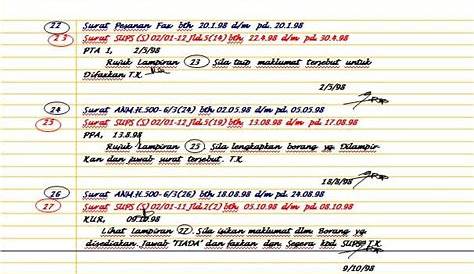 22 Surat Pesanan Fax bth 20.1.98 d/m pd. 20.1.98
23 Surat SUPS (S) 02/01-12 Jld.5(14) bth 22.4.98 d/m pd. 30.4.98
PTA 1, 2/5/98
Rujuk Lampiran 23 Sila taip maklumat tersebut untuk
Difaxkan T.K
2/5/98
24 Surat ANM.H.500-6/3(24) bth 02.05.98 d/m pd. 05.05.98
25 Surat SUPS (S) 02/01-12 Jld.5(19) bth 13.08.98 d/m pd 17.08.98
PPA, 13.8.98
Rujuk Lampiran 25 Sila lengkapkan borang yg Dilampir
Kan dan jawab surat tersebut. T.K
18/8/98
26 Surat ANM.H.500-6/3(26) bth 18.08.98 d/m pd. 24.08.98
27 Surat SUPS (S) 02/01-11 Jld.2(2) bth 05.10.98 d/m pd 08.10.98
KUR, 09.10.98
Lihat Lampiran 27. Sila isikan maklumat dlm Borang yg
disediakan. Jawab "TIADA" dan faxkan dgn Segera kpd SUPS. T.K
9/10/98